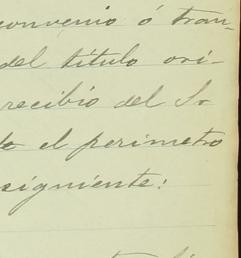 convenio ó tran-
del título ori-
recibio del Sr
el perimetro
siguiente: